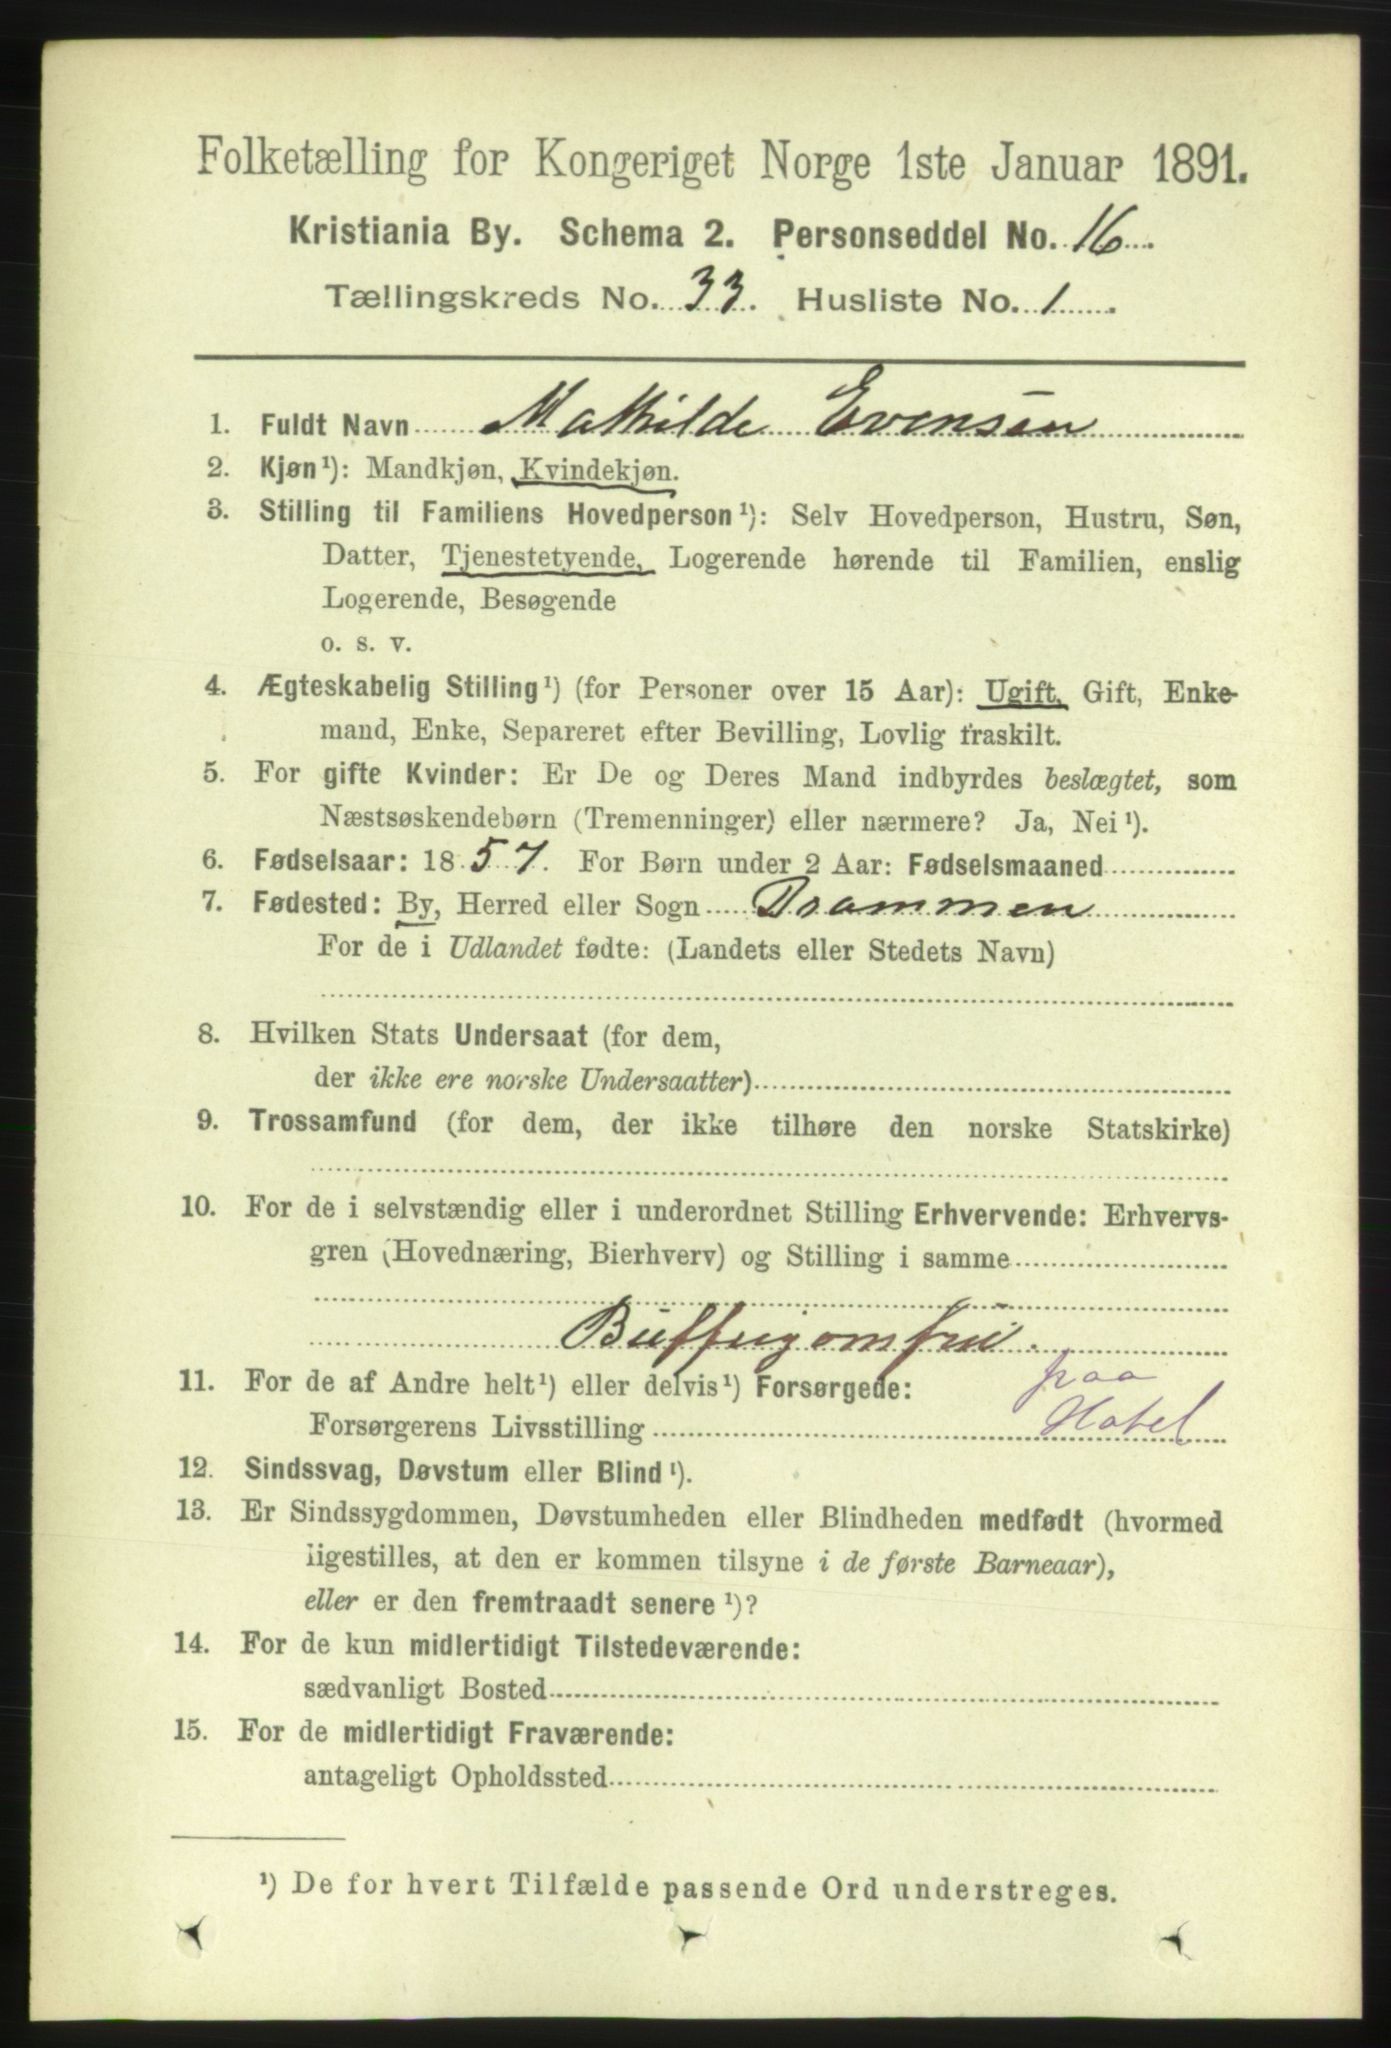 Folketælling for Kongeriget Norge 1ste Januar 1891.
Kristiania By. Schema 2. Personseddel No. 16.
Tællingskreds No. 33. Husliste No. 1.
1. Fuldt Navn Mathilde Evensen
2. Kjøn¹): Mandkjøn, Kvindekjøn.
3. Stilling til Familiens Hovedperson¹): Selv Hovedperson, Hustru, Søn,
Datter, Tjenestetyende, Logerende hørende til Familien, enslig
Logerende, Besøgende
o. s. v.
4. Ægteskabelig Stilling¹) (for Personer over 15 Aar): Ugift, Gift, Enke-
mand, Enke, Separeret efter Bevilling, Lovlig fraskilt.
5. For gifte Kvinder: Er De og Deres Mand indbyrdes beslægtet, som
Næstsøskendebørn (Tremenninger) eller nærmere? Ja, Nei¹).
6. Fødselsaar: 1857. For Børn under 2 Aar: Fødselsmaaned
7. Fødested: By, Herred eller Sogn Drammen
For de i Udlandet fødte: (Landets eller Stedets Navn)
8. Hvilken Stats Undersaat (for dem,
der ikke ere norske Undersaatter)
9. Trossamfund (for dem, der ikke tilhøre den norske Statskirke)
10. For de i selvstændig eller i underordnet Stilling Erhvervende: Erhvervs-
gren (Hovednæring, Bierhverv) og Stilling i samme
Buffetjomfru.
11. For de af Andre helt¹) eller delvis¹) Forsørgede: paa
Forsørgerens Livsstilling Hotel
12. Sindssvag, Døvstum eller Blind¹).
13. Er Sindssygdommen, Døvstumheden eller Blindheden medfødt (hvormed
ligestilles, at den er kommen tilsyne i de første Barneaar),
eller er den fremtraadt senere¹)?
14. For de kun midlertidigt Tilstedeværende:
sædvanligt Bosted
15. For de midlertidigt Fraværende:
antageligt Opholdssted
¹) De for hvert Tilfælde passende Ord understreges.